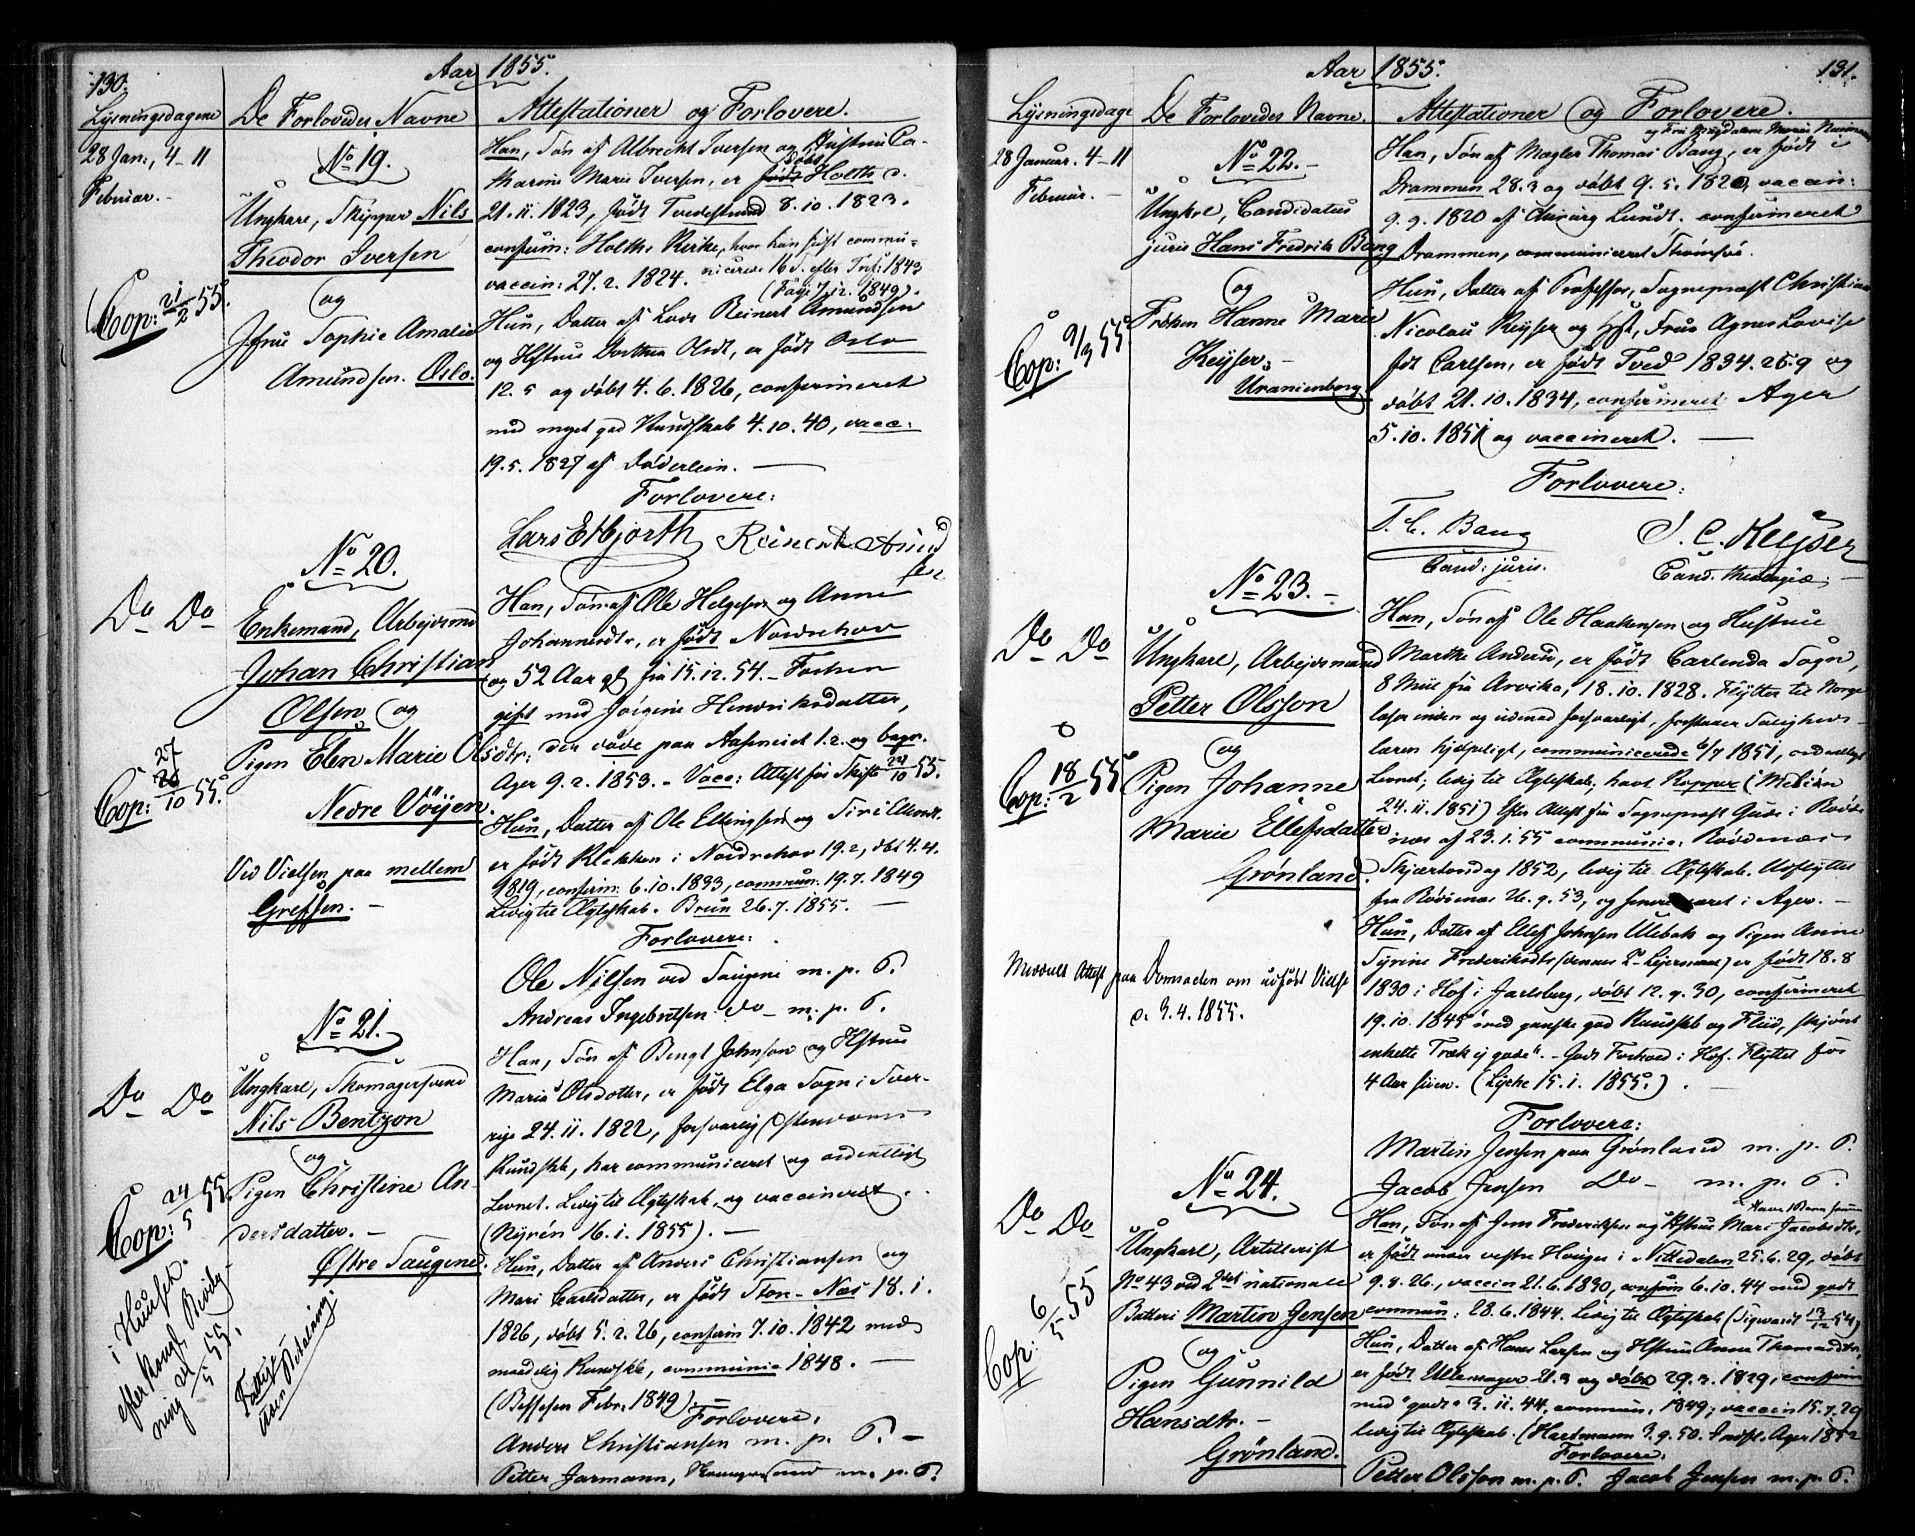 130.
Aar 1855.
Lysningsdagene
De Forlovedes Navne
Attestationer og Forlovere.
28 Jan:, 4-11
Februar.
No 19.
Ungkarl, Skipper Nils
Theodor Iversen
og
Jfru Sophie Amalie
Amundsen. Oslo.
Cop: 21/2 55.
Han, Søn af Albrecht Iversen og Hustrue Ca-
tharine Marie Iversen, er døbt Holths d.
21.11.1823, født Tvedestrand 8.10.1823.
confirm: Holths Kirke, hvor han sidst commu-
nicerede 16 S. efter Trit: 1843
vaccin: 27.2.1824. (Faye 7.12.1849).
Hun, Datter af Lods Reinert Amundsen
og Hstrue Dorthea Olsdt, er født Oslo
12.5 og døbt 4.6.1826, confirmeret
med meget god Kundskab 4.10.40, vacc:
19.5.1827 af Døderlein.
Forlovere:
Lars Esbjorth Reinert Amund
sen
No 20.
Do Do
Enkemand, Arbejdsmd
Johan Christian
Olsen og
Pigen Elen Marie Olsdtr:
Nedre Vöyen.
Cop: 27/10 55.
Ved Vielsen paa mellem
Grefsen.
Han, Søn af Ole Helgesen og Anne
Johannesdtr, er født Norderhov
og 52 Aar gl fra 15.12.54. Forhen
gift med Jørgine Henriksdatter,
der døde paa Aaserud 1.2. og begr.
Ager 9.2.1853. - Vacc: Attest for Skifte 27/10 55.
Hun, Datter af Ole Ellingsen og Siri
er født Klekken i Norderhov 19.2, dbt 4.4.
1819, confirm: 6.10.1833, commun. 19.7.1849
Ledig til Ægteskab. Brun 26.7.1855.
Forlovere:
Ole Nilsen ved Saugene m. p. P.
Andreas Ingebretsen do m. p. P.
No 21.
Do Do
Ungkarl, Skomagersvend
Nils Bentzon
og
Pigen Christine An-
dersdatter.
Østre Saugene.
Cop: 24/5 55
i Huuset.
efter kongl. Bevilg-
ning 21/5 55.
Fattigt
uden Betaling.
Han, Søn af Bengt Johnson og Hstrue
Maria Olsdotter, er født Elga Sogn i Sver-
rige 24.11.1822, forsvarlig Christendoms
Kundskb, har communiceret og ordentligt
Levnet. Ledig til Ægteskab og vaccineret.
(Nyrén 16.1.1855).
Hun, Datter af Anders Christiansen og
Mari Carlsdatter, er født Ston-Næs 18.1.
1826, døbt 5.2.26, confirm 7.10.1842 med
maadelig Kundskb, communic 1848.
(Bessesen Febr. 1849)
Forlovere,
Anders Christiansen m. p. P.
Petter Jarmann, m. p. P.
131.
Aar 1855.
Lysningsdage
De Forlovedes Navne.
Attestationer og Forlovere.
28 Januar. 4-11
Februar.
No 22.
Ungkrl, Candidatus
juris Hans Fredrik Bang
og
Frøken Hanne Marie
Keyser.
Uranienborg
Cop: 9/3 55.
og Fru Magdalene Marie
Han, Søn af Mægler Thomas Bang, er født i
Drammen 28.3 og døbt 9.5.1820, vaccin:
9.9.1820 af Chirurg Lundt. confirmeret
Drammen, communiceret Strømsø.
Hun, Datter af Professor, Sogneprest Christian
Nicolai Keyser og Hst, Frue Agnes Lovise
fdt Carlsen, er født Tved 1834.26.9 og
døbt 21.10.1834, confirmeret Ager
5.10.1851 og vaccineret.
Forlovere:
T. C. Bang
Cand: juris.
J. C. Keyser
Cand. theologiæ.
No 23.
Do Do
Ungkarl, Arbejdsmand
Petter Olsson
og
Pigen Johanne
Marie Ellefsdatter
Grønland.
Cop: 18/2 55
Meddelt Attest paa Domsøden om udført Vielse
d. 3.4.1855.
Han, Søn af Ole Haakensen og Hustrue
Marthe Andersd, er født Carlanda Sogn,
8 Miil fra Arvika, 18.10.1828. Flytter til Norge
læser inden og udenad forsvarligt, forstaaer Salighets-
læren hjelpeligt, communicerede 6/7 1851, ordentligt
Levnet; ledig til Ægteskab; havt Kopper (Melién
24.11.1851) Efter Attest fra Sognepræst Gude i Rødø-
næs af 23.1.55 communic: Rødenæs
Skjærtorsdag 1852, ledig til Ægteskab. Udflyttet
fra Rødenæs 26.9.53, og senere været i Ager.
Hun, Datter af Ellef Johnsen Ulebak og Pigen Anne
Syrine Frederiksdtr (dennes 2 Lejermaal) er født 18.8
1830 i Hof i Jarlsberg, døbt 12.9.30, confirmeret
19.10.1845 "med ganske god Kundskb og Fliid, skjønt
enkelte Træk ej gode". - Godt Forhold i Hof. Flyttet for
4 Aar siden. (Lyche 15.1.1855.).
Forlovere:
Martin Jensen paa Grønland m. p. P.
Jacob Jensen Do m. p. P.
No 24.
Do Do
Ungkarl, Artillerist
No 43 ved 2det nationale
Batteri Martin Jensen
og
Pigen Gunnild
Hansdtr.
Grønland.
Cop: 6/5 55
Han, Søn af Jens Frederiksen og Hstrue Mari Jacobsdtr,
er født under vestre Houger i Nittedalen 25.6.29, døbt
9.8.26., vaccin 21.6.1830, confirm 6.10.44 med godt
commun: 28.6.1844. Ledig til Ægteskab (Sigwardt 13/12 54)
Hun, Datter af Hans Larsen og Hstrue Anne Thomasdtr,
er født Ullensager 21.3 og døbt 29.3.1829, confirm
med "godt" 3.11.44, commun. 1849; vaccin 15.7.29
ledig til Ægteskab. (Hartmann 3.9.50. Indfl. Ager 1852
Forlovere.
Petter Olsson m. p. P. Jacob Jensen m. p. P.